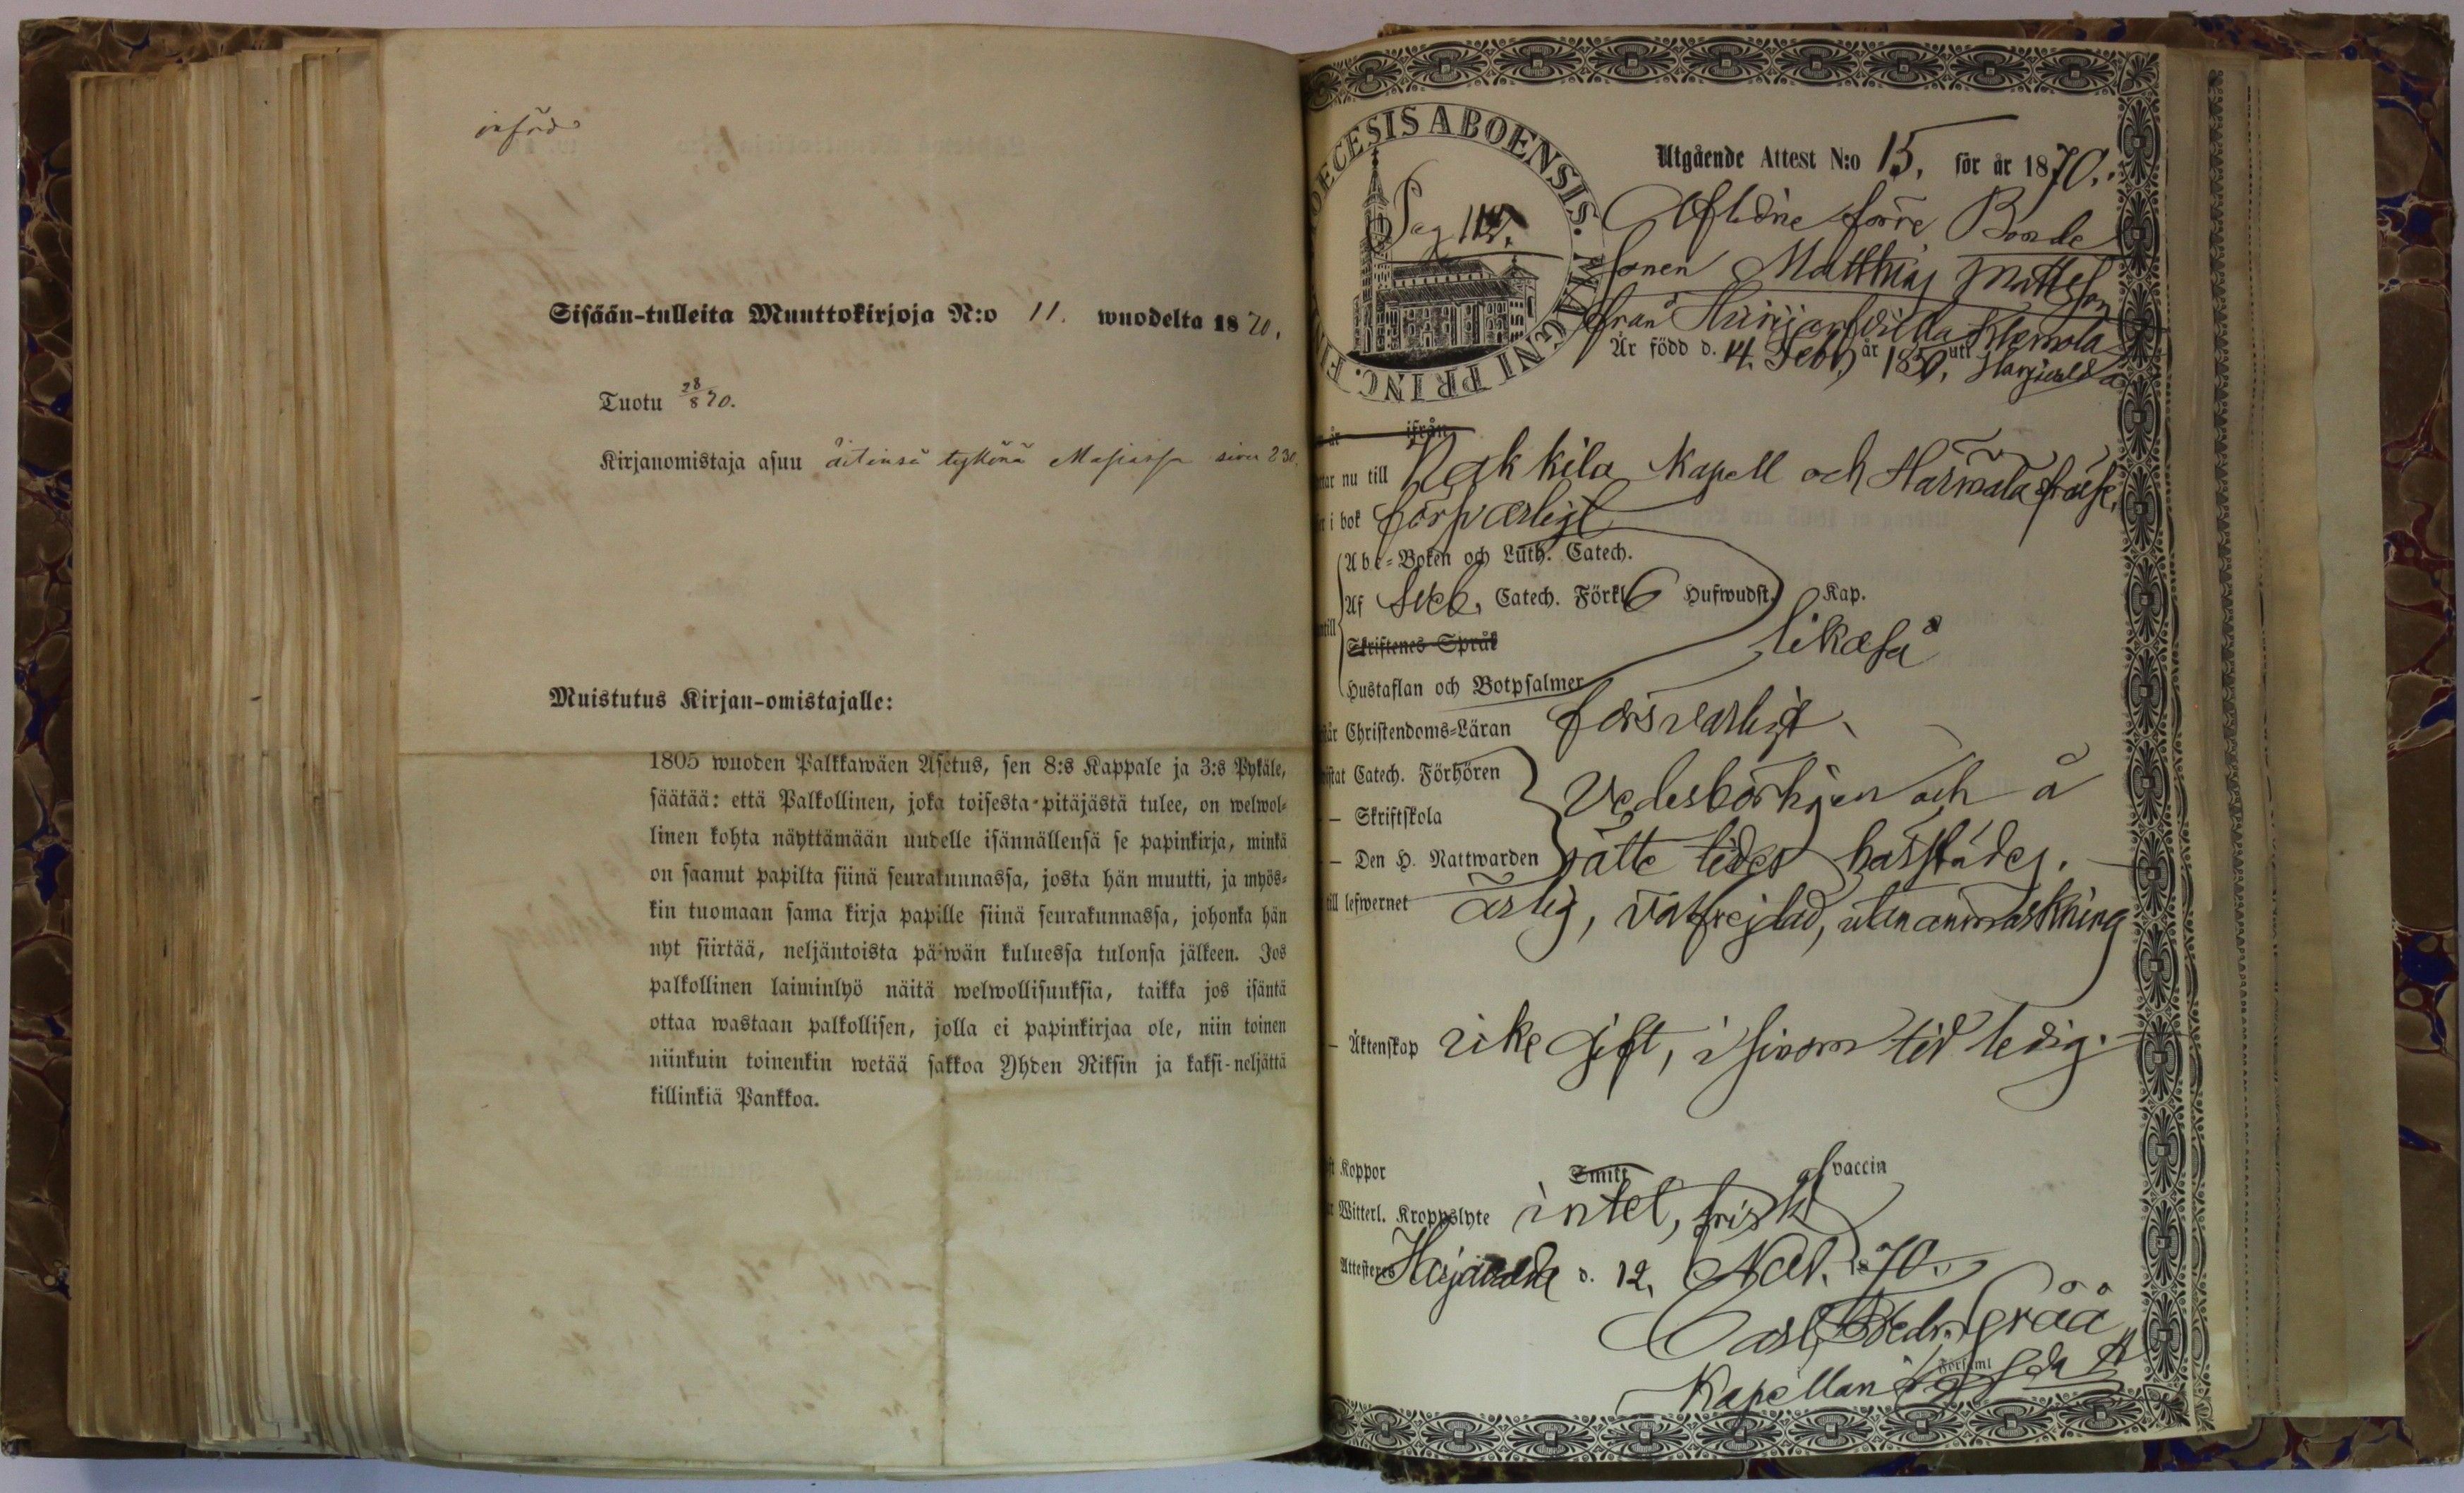 införd
Sisään-tulleita Muuttokirjoja N:o 11. wuodelta 1870.
Tuotu 28/8 70.
Kirjanomistaja asuu äitinsä tykönä sivu 230.
Muistutus Kirjan-omistajalle:
1805 wuoden Palkkawäen Asetus, sen 8:s Kappale ja 3:s Pykäle,
säätää: että Palkollinen, joka toisesta pitäjästä tulee, on welwol=
linen kohta näyttämään uudelle isännällensä se papinkirja, minkä
on saanut papilta siinä seurakunnassa, josta hän muutti, ja myös=
kin tuomaan sama kirja papille siinä seurakunnassa, johonka hän
nyt siirtää, neljäntoista päiwän kuluessa tulonsa jälkeen. Jos
palkollinen laiminlyö näitä welwollisuuksia, taikka jos isäntä
ottaa wastaan palkollisen, jolla ei papinkirjaa ole, niin toinen
niinkuin toinenkin wetää sakkoa Yhden Riksin ja kaksi-neljättä
killinkiä Pankkoa.
OECESIS ABOENSIS. MAGNI PRINC. FIN
Pag 112.
Utgående Attest N:o 15. för år 1870.
Aflidne förre Bonde
sonen Matthias Mattsson
från Klemola
Är född d. 14. Febr. år 1850, uti Harjavalda
år ifrån
tar nu till Nakkila Kapell och
i bok försvarligt
Abc=Boken och Luth. Catech.
Af Sveb. Catech. Förkl. 6 Hufwudst. Kap.
Skriftenes Språk likaså
Hustaflan och Botpsalmer
år Christendoms=Läran försvarligt
istat Catech. Förhören
– Skriftskola Vederbörligen och å
– Den H. Nattwarden rätte tider härstädes.
till lefwernet ärlig, välfrejdad, utan anmärkning
– Äktenskap icke gift, i sinom tid ledig.
Koppor Smitt af vaccin
Witterl. Kroppslyte intet, frisk
Attesteres Harjavalda d. 12. 1870.
Carl Fredr. Gråå
Kapellan Församl